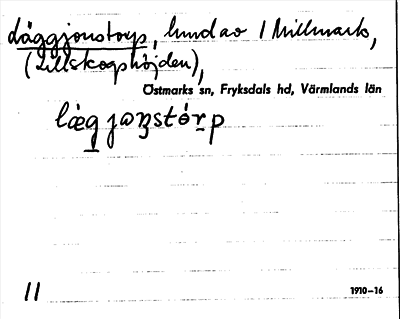 Läggjonstorp, lund av 1 Millmark,
(Lillskogshöjden),
Östmarks sn, Fryksdals hd, Värmlands län
11
1910–16